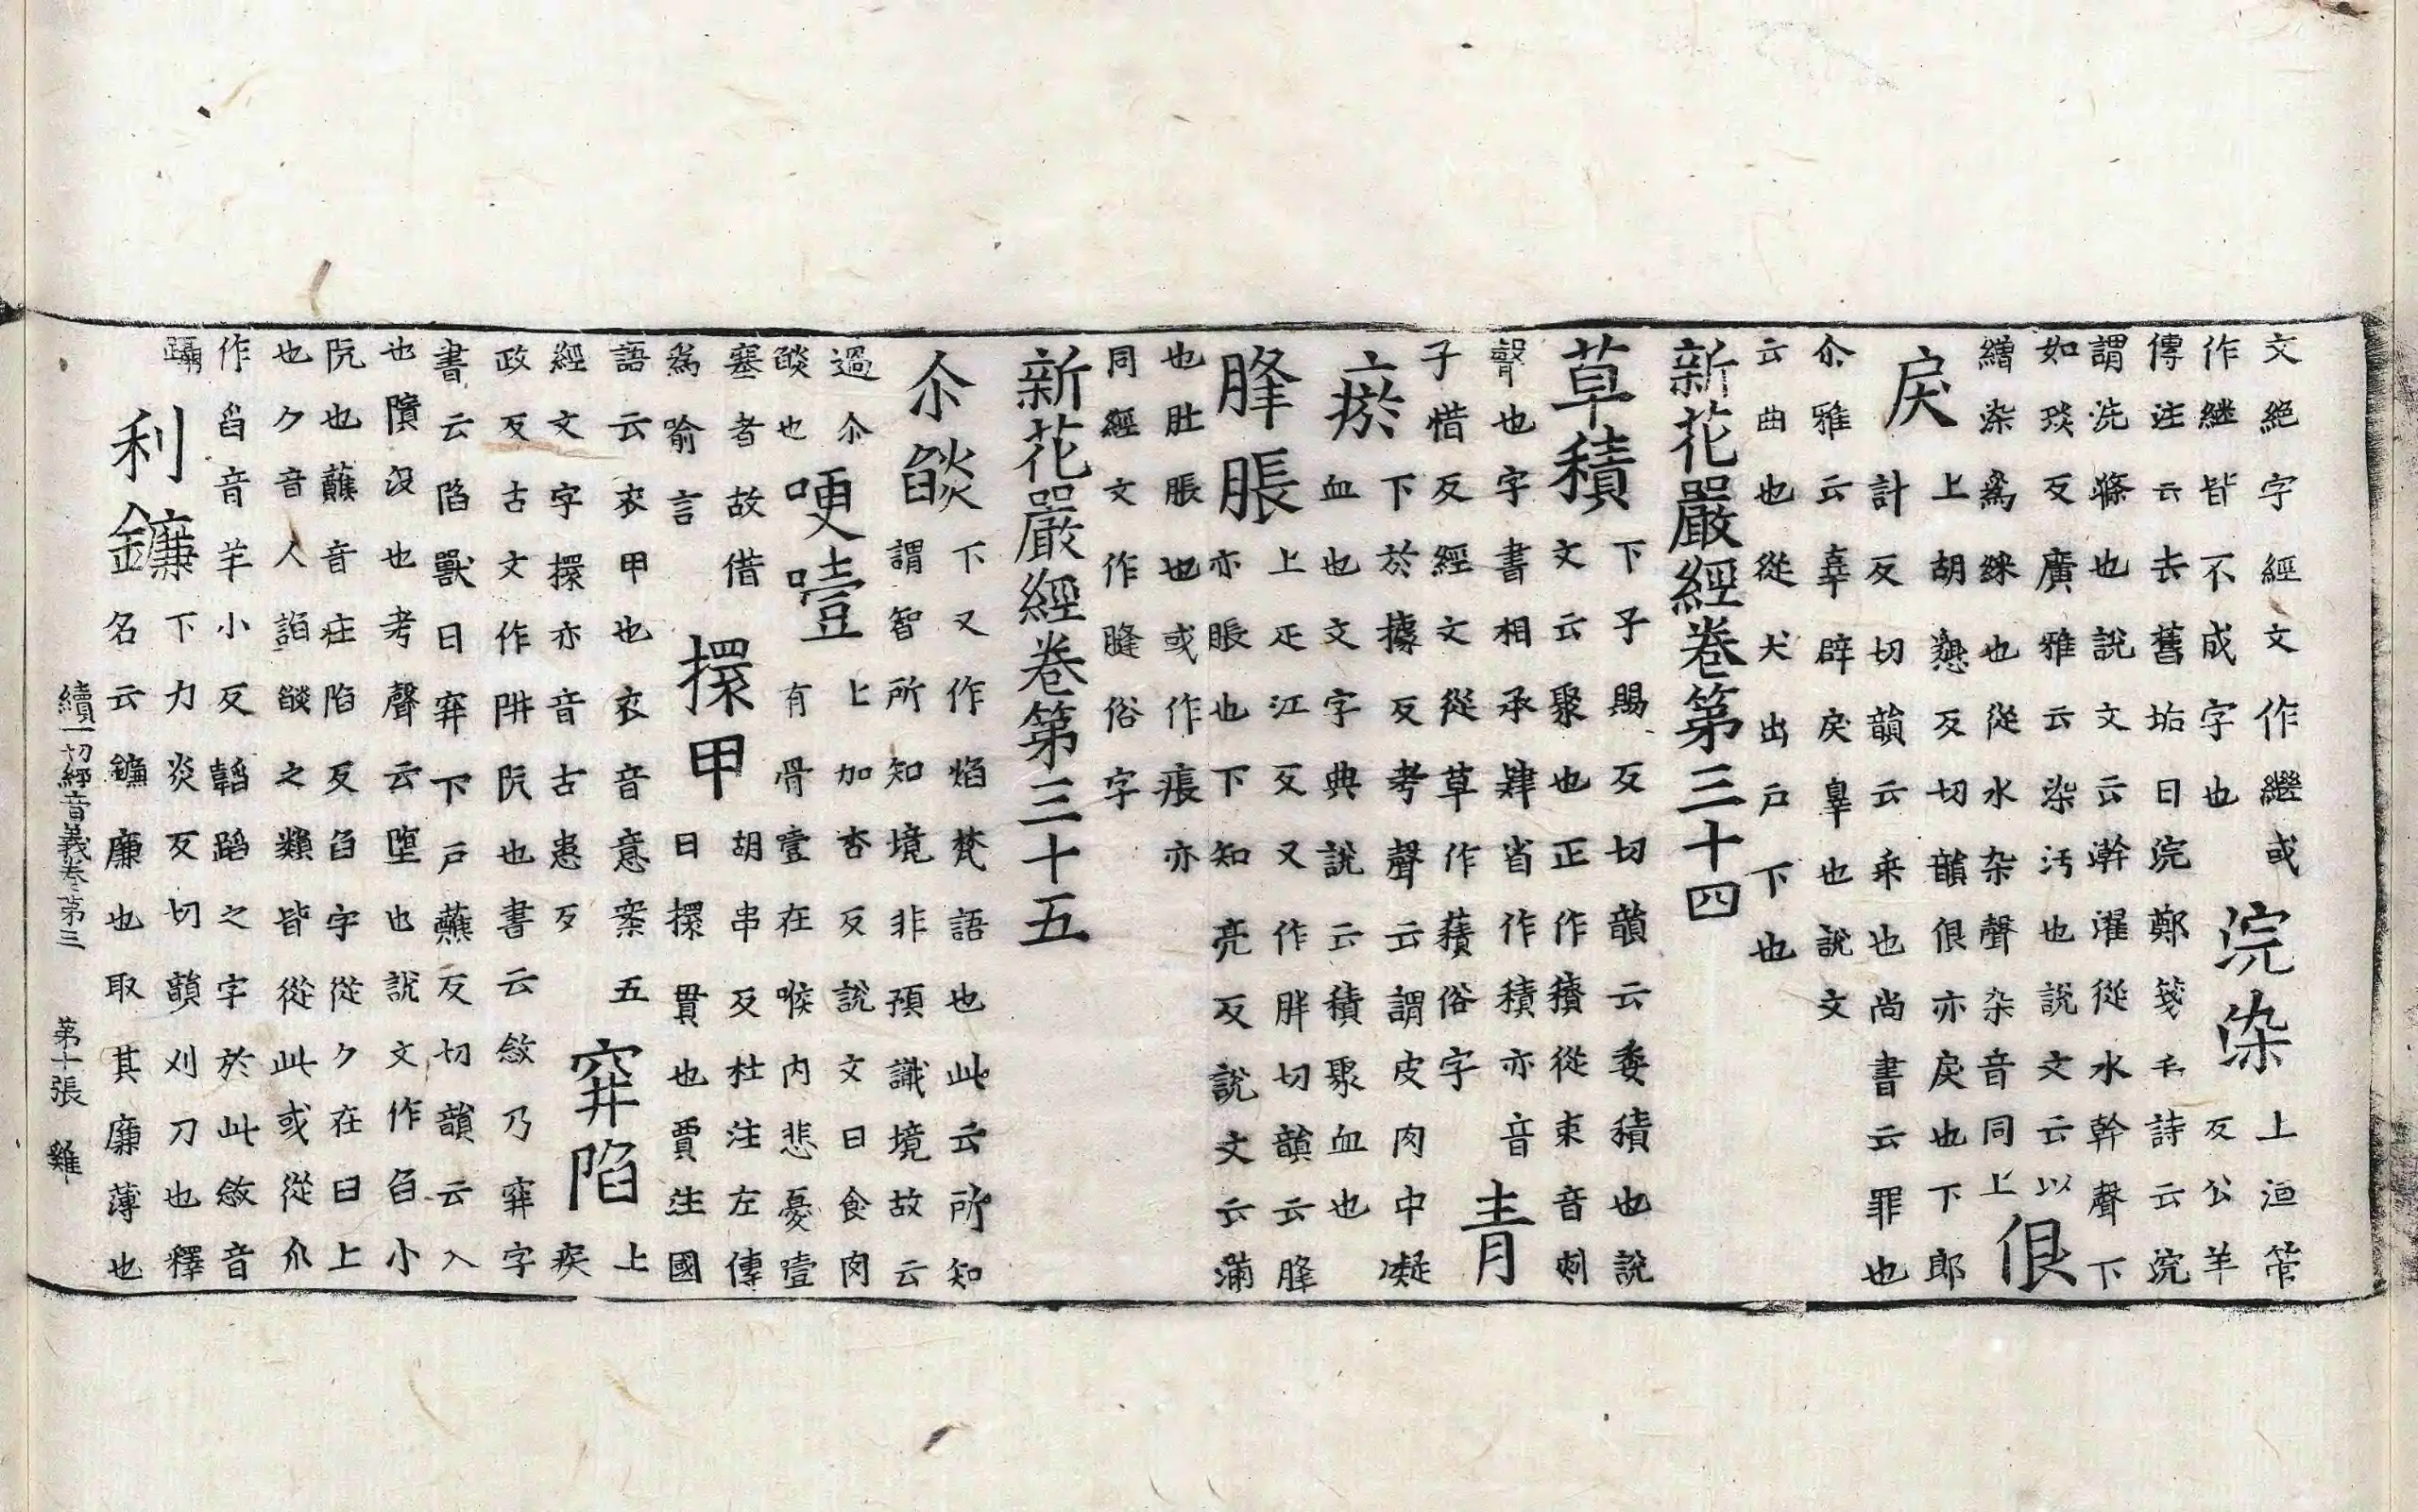 文絶字經文作繼或作継皆不成字也浣染上洹管反公羊
傳注云去舊垢曰浣鄭箋毛詩云浣謂洗滌也說文云澣濯從水幹聲下
如琰反廣雅云染汚也說文云以繒染爲綵也從水杂聲杂音同上佷
戾上胡懇反切韻佷亦戾也下郎計反切韻云乖也尚書云罪也
尒雅云辜辟戾辠也說文云曲也從犬出戶下也
新花嚴經卷第三十四
草積下子賜反切韻云委積也說文云聚也正作穧從朿音刺
聲也字書相承肄省作積亦音子惜反經文從草作蕷俗字青
瘀下於據反考聲云謂皮肉中凝血也文字典說云積聚血也
胮脹上疋江反又作胖切韻云胮亦脹也下知亮反說文云滿
也肚脹也或作痮亦同經文作膖俗字
新花嚴經卷第三十五
尒燄下又作焰梵語也此云所知謂智所知境非預識境故云
過尒燄也哽噎上加杏反說文曰食肉有骨噎在喉内悲憂噎
塞者故借爲喻言擐甲胡串反杜注左傳曰擐貫也賈注國
語云衣甲也衣音意案五經文字擐亦音古患反穽陷上疾
政反古文作阱阬也書云敜乃穽字書云陷獸曰穽下戶蘸反切韻云入
也隤沒也考聲云墮也說文作臽小阬也蘸音庄陷反臽字從ク在臼上
也ク音人諂燄之類皆從此或從爪作舀音羊小反韜蹈之字於此敜音
躡利鐮下力炎反切韻刈刀也釋名云鐮廉也取其廉薄也
續一切經音義卷第三 第十張 雞